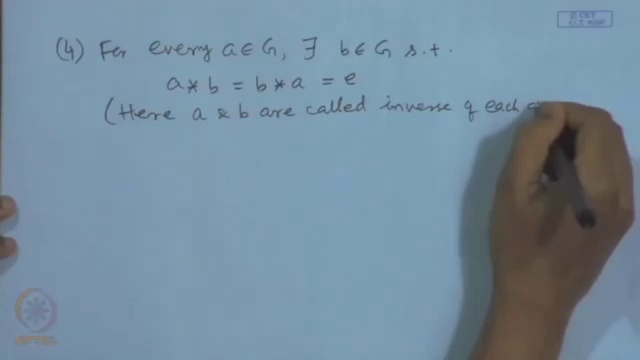 © CET
I.I.T. KGP
(4) For every a ∈ G, ∃ b ∈ G s.t.
a * b = b * a = e
(Here a & b are called inverse of each
NPTEL